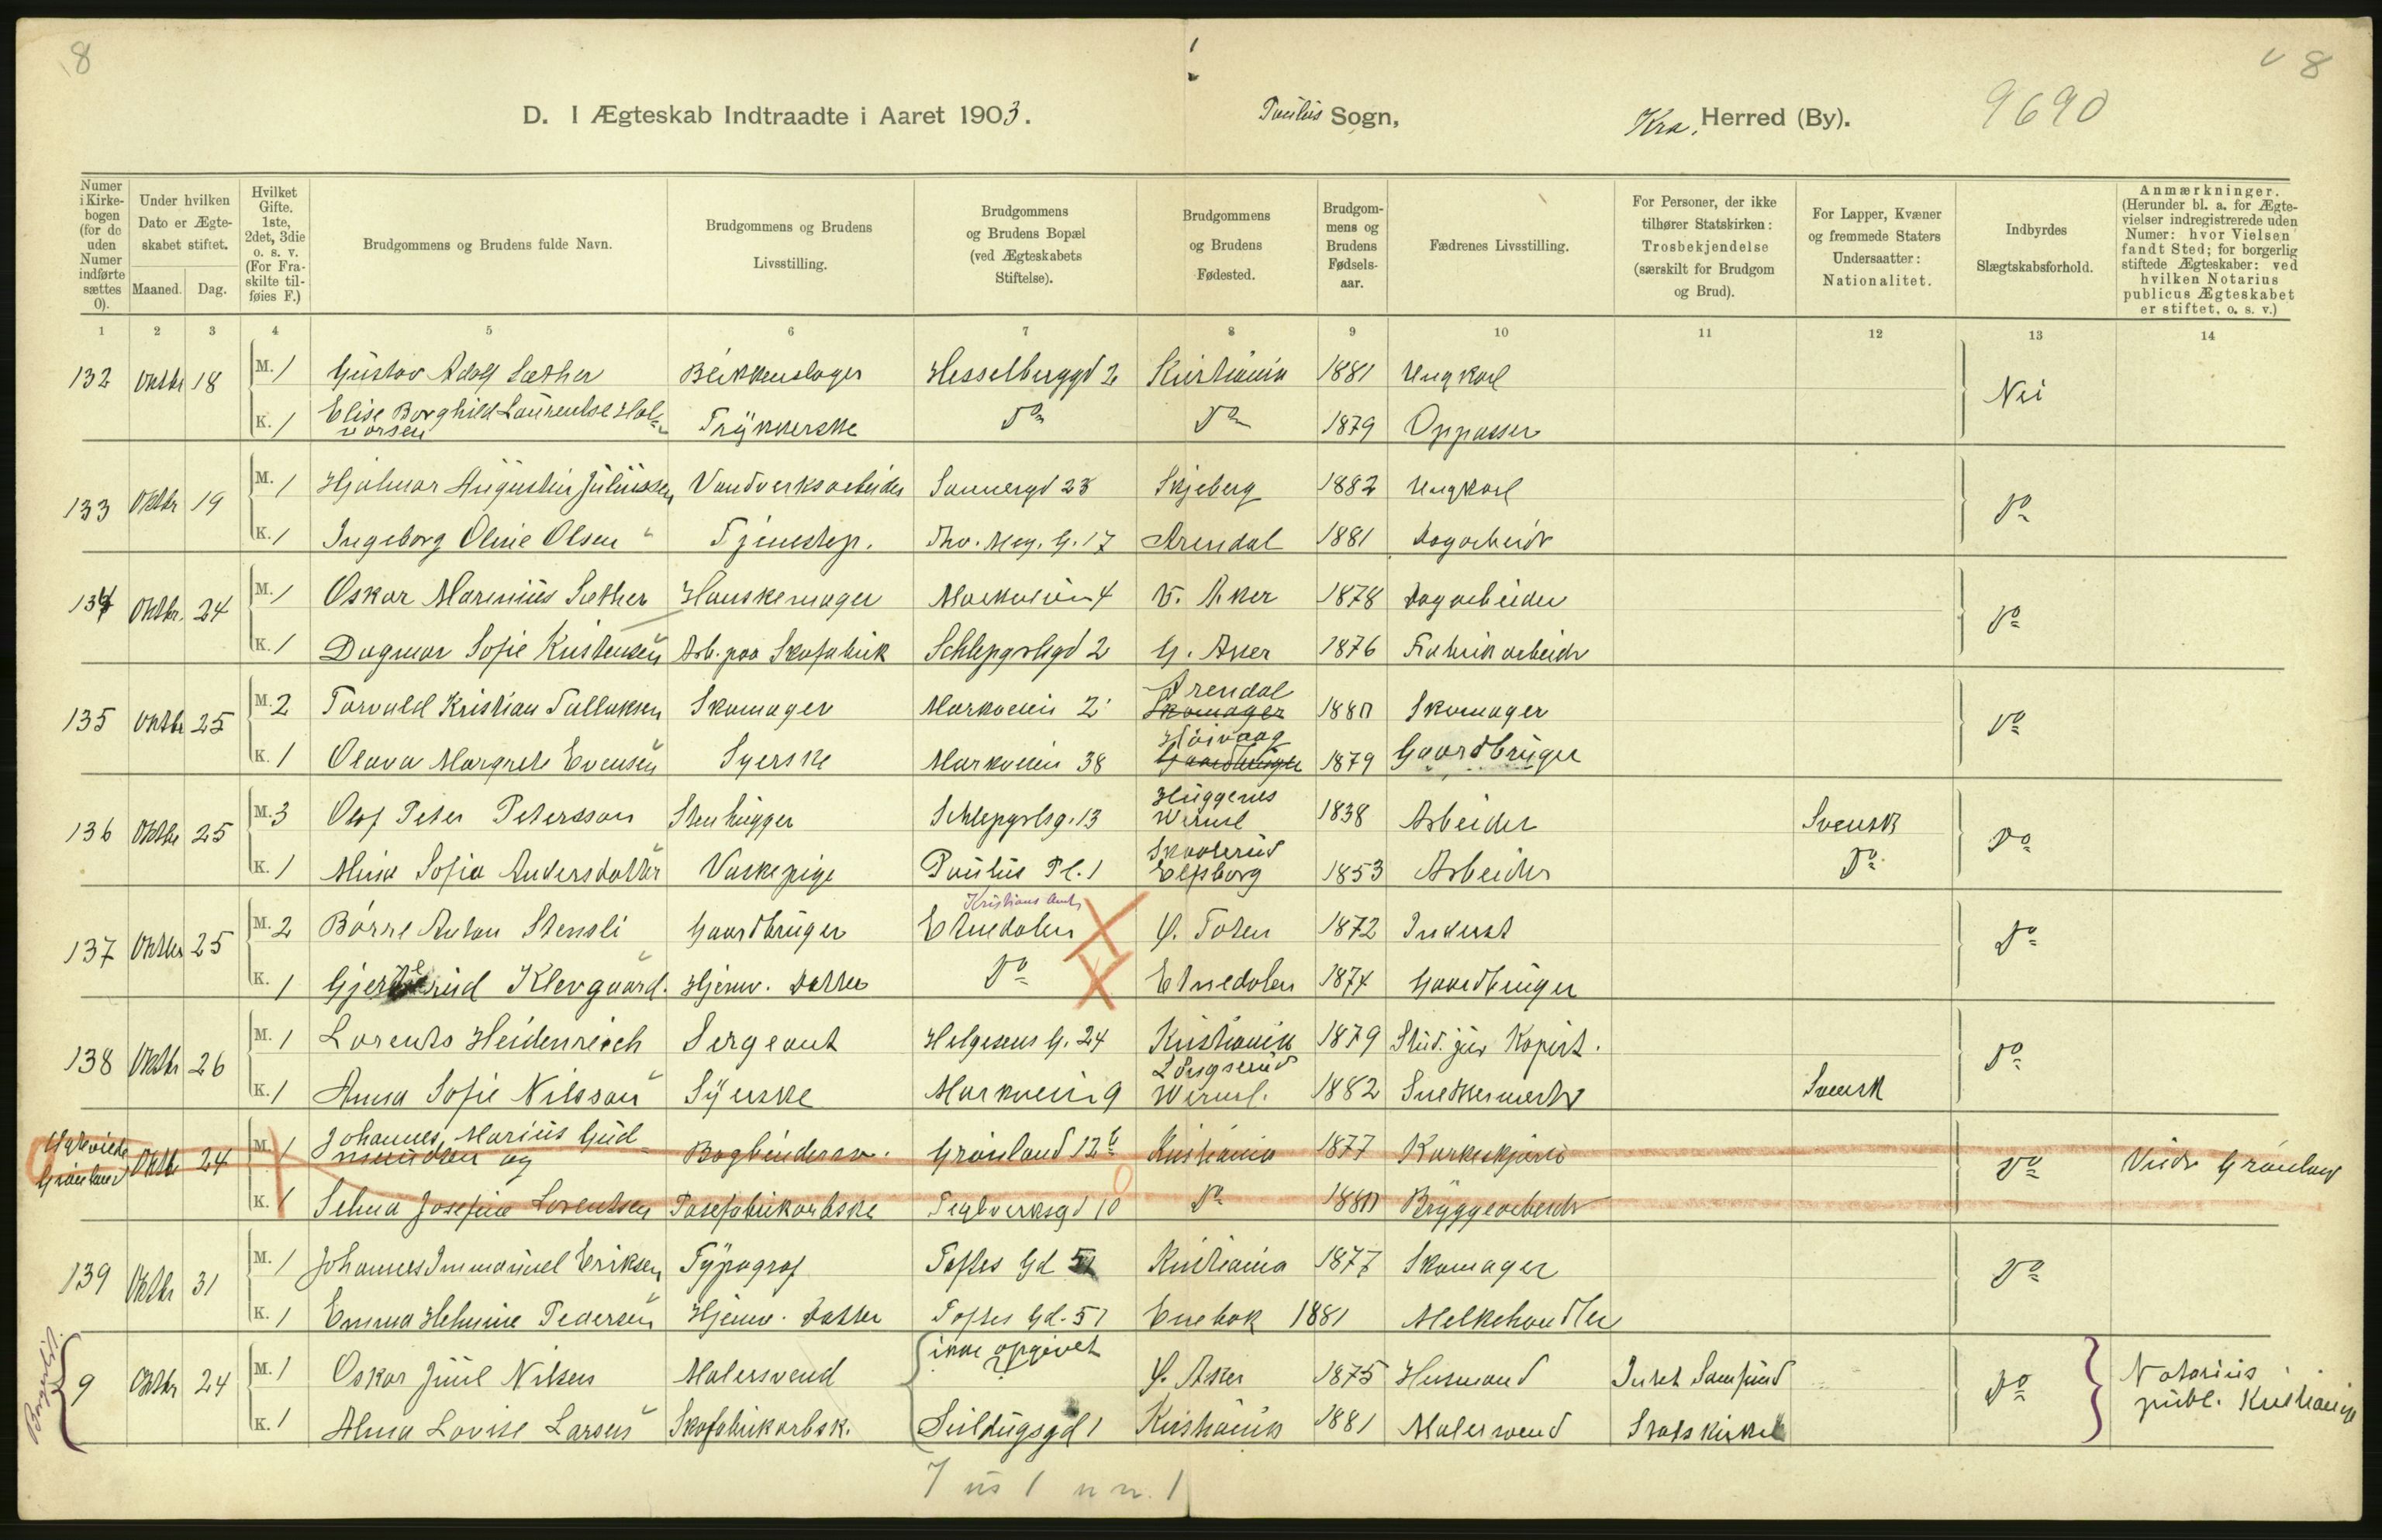 8
8
D. I Ægteskab Indtraadte i Aaret 1903.
Paulus Sogn,
Kra. Herred (By).
9690
Numer i Kirkebogen (for de uden Numer indførte sættes 0).
Under hvilken Dato er Ægteskabet stiftet.
Maaned. Dag.
Hvilket Gifte. 1ste, 2det, 3die o. s. v. (For Fraskilte tilføies F.)
Brudgommens og Brudens fulde Navn.
Brudgommens og Brudens Livsstilling.
Brudgommens og Brudens Bopæl (ved Ægteskabets Stiftelse).
Brudgommens og Brudens Fødested.
Brudgommens og Brudens Fødselsaar.
Fædrenes Livsstilling.
For Personer, der ikke tilhører Statskirken: Trosbekjendelse (særskilt for Brudgom og Brud).
For Lapper, Kvæner og fremmede Staters Undersaatter: Nationalitet.
Indbyrdes Slægtskabsforhold.
Anmærkninger. (Herunder bl. a. for Ægtevielser indregistrerede uden Numer: hvor Vielsen fandt Sted; for borgerlig stiftede Ægteskaber: ved hvilken Notarius publicus Ægteskabet er stiftet, o. s. v.)
1 2 3 4 5 6 7 8 9 10 11 12 13 14
132 Oktbr 18 M. 1 Gustav Adolf Sæther Blikkenslager Hesselberggd 2 Kristiania 1881 Ungkarl Nei
K. 1 Elise Borghild Laurentse Halvorsen Trykkerske Do Do 1879 Oppasser
133 Oktbr 19 M. 1 Hjalmar Augustin Juliussen Vandverksarbeider Sannergd 23 Skjeberg 1882 Ungkarl Do
K. 1 Ingeborg Oline Olsen Tjenestep. Thv. Mey. G. 17 Arendal 1881 Dagarbeidr
134 Oktbr. 24 M. 1 Oskar Marinius Sæther Hanskemager Markveien 4 V. Aker 1878 Dagarbeider Do
K. 1 Dagmar Sofie Kristensen Arb. paa Skofabrik Schlepgrlsgd 2 G. Aker 1876 Fabrikarbeidr
135 Oktbr 25 M. 2 Torvald Kristian Tallaksen Skomager Markveien 2 Arendal Skomager 1880 Skomager Do
K. 1 Olava Margrete Evensen Syerske Markveien 38 Høivaag Gaardbruger 1879 Gaardbruger
136 Oktbr 25 M. 3 Olof Peter Petersson Stenhugger Schlepgrlsg. 13 Huggenes Werml 1838 Arbeider Svensk Do
K. 1 Alina Sofia Andersdatter Vaskepige Paulus Pl. 1 Elfsborg 1853 Arbeider Do
137 Oktbr 25 M. 2 Børre Anton Stensli Gaardbruger Kristians Amt, Etnedalen Ø. Toten 1872 Inderst Do
K. 1 Klevgaard. Hjemv. Datter Do Etnedalen 1874 Gaardbruger
138 Oktbr 26 M. 1 Lorents Heidenreich Sergeant Helgesens G. 24 Kristiania 1879 Stud. jur Kopist. Do
K. 1 Anna Sofie Nilsson Syerske Markveien 9 Werml. 1882 Snedkermester Svensk
Grønland Oktb 24 M. 1 Johannes Marius Gudmundsen og Bogbindersv. Grønland 12b Kristiania 1877 Do Viede Grønland
K. 1 Selma Josefine Lorentsen Posefabrikarbske Teglverksgd 10 Do 1880 Bryggearbeidr
139 Oktbr 31 M. 1 Johannes Immanuel Eriksen Typograf Toftes Gd 51 Kristiania 1877 Skomager Do
K. 1 Emma Helmine Pedersen Hjemv. Datter Toftes Gd. 51 Enebak 1881 Melkehandler
Borgerlit. 9 Oktbr 24 M. 1 Oskar Juul Nilsen Malersvend ikke opgivet Ø. Aker 1875 Husmand Intet Samfund Do Notarius publ. Kristiania
K. 1 Alma Lovise Larsen Skofabrikarbsk. Seildugsgd 1 Kristiania 1881 Malersvend Statskirke